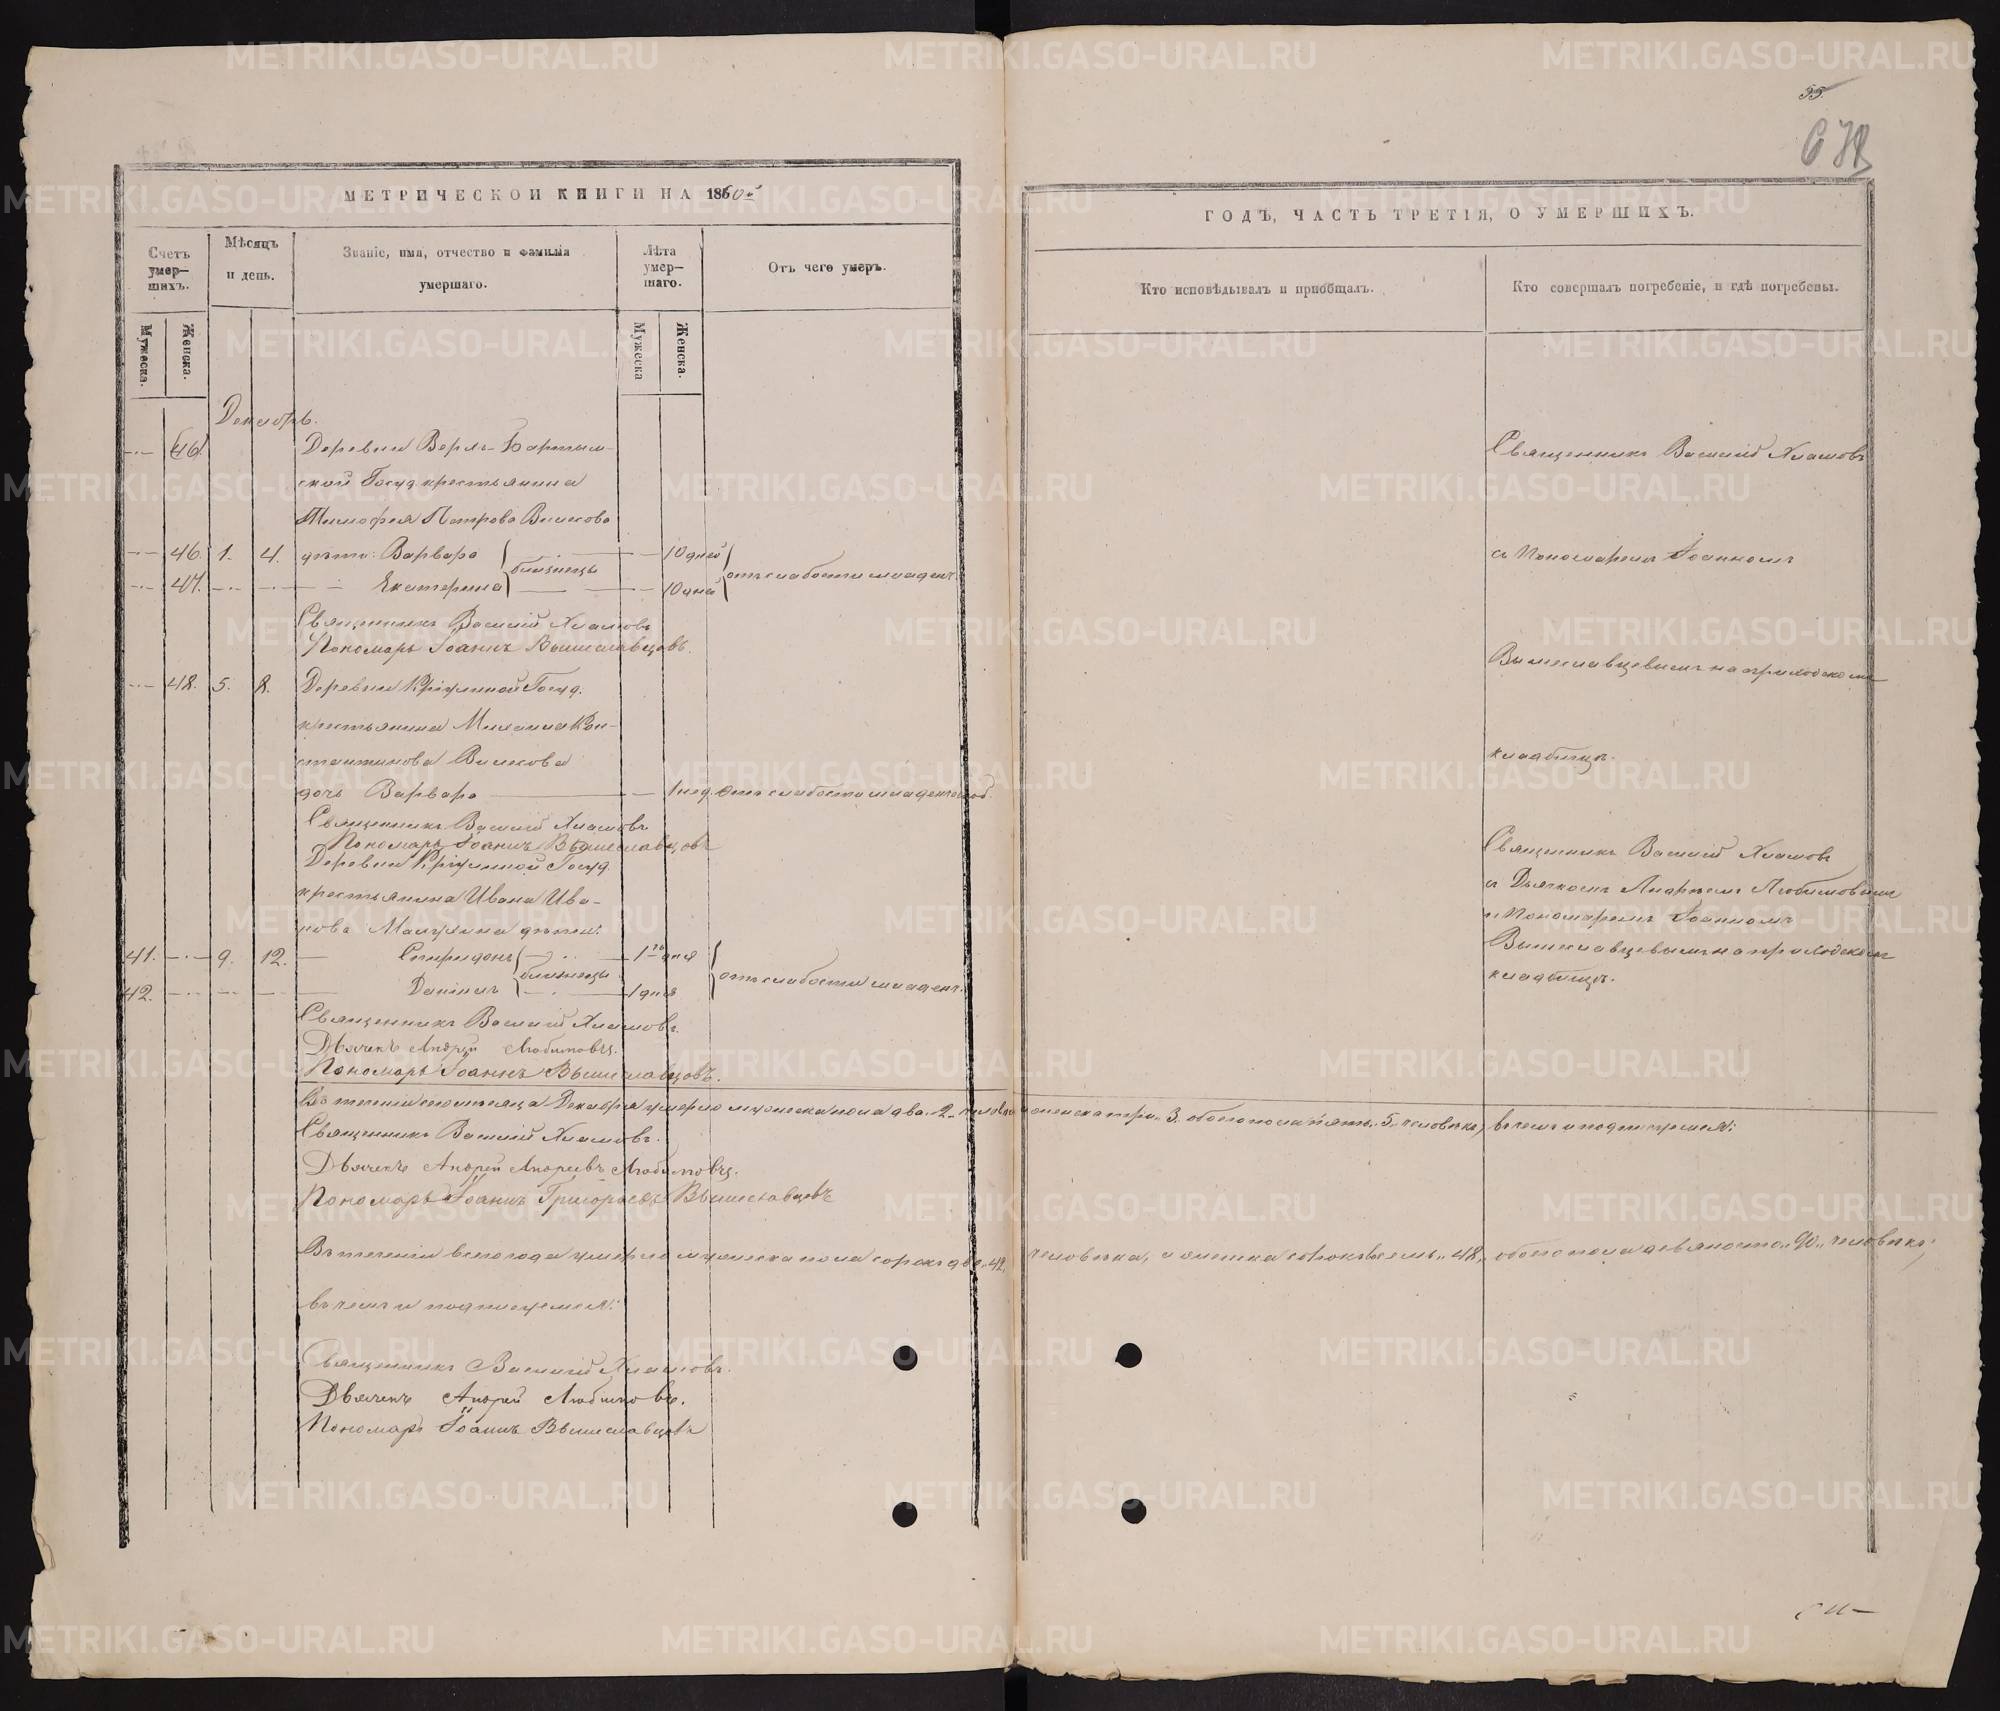 55.
МЕТРИЧЕСКОЙ КНИГИ НА 1860й
ГОДЪ, ЧАСТЬ ТРЕТІЯ, О УМЕРШИХЪ.
Счетъ умер-шихъ.
Мѣсяцъ и день.
Званіе, имя, отчество и фамилія умершаго.
Лѣта умер-шаго.
Отъ чего умеръ.
Кто исповѣдывалъ и пріобщалъ.
Кто совершалъ погребеніе, и гдѣ погребены.
Мужеска.
Женска.
Мужеска
Женска.
Декабрь.
46.
Деревни Верхъ-Бартым-
ской Госуд. крестьянина
Тимофея Петрова
46. 1. 4. дѣти: Варвара близнецы 10 дней
47. Екатерина 10 дней
отъ слабости младенч.
Священникъ Василій Хламовъ
Пономарь Іоаннъ Вышеславцовъ.
48. 5. 8. Деревни Госуд.
крестьянина Михаила Кон-
стантинова
дочь Варвара 1 нед. отъ слабости младенческой.
Священникъ Василій Хламовъ
Пономарь Іоаннъ Вышеславцовъ
Деревни Госуд.
крестьянина Ивана Ива-
нова дѣти:
41. 9. 12. Спиридонъ близнецы 1 дня
42. Даніилъ 1 дня
отъ слабости младенч.
Священникъ Василій Хламовъ.
Дьячекъ Андрей Любимовъ.
Пономарь Іоаннъ Вышеславцовъ.
Священникъ Василій Хламовъ
съ Пономаремъ Іоанномъ
Вышеславцевымъ на приходскомъ
кладбищѣ.
Священникъ Василій Хламовъ
съ Дьячкомъ Андреемъ Любимовымъ
и Пономаремъ Іоанномъ
Вышеславцевымъ на приходскомъ
кладбищѣ.
Въ теченіи сего мѣсяца Декабря умерло мужеска пола два „2„ человѣка, женска три „3„ обоего пола пять „5„ человѣкъ, въ чемъ и подписуемся:
Священникъ Василій Хламовъ.
Дьячекъ Андрей Андреевъ Любимовъ.
Пономарь Іоаннъ Григорьевъ Вышеславцевъ
Въ теченіи всего года умерло мужеска пола сорокъ два „42„ человѣка, женска сорокъ восемь „48„ обоего пола девяносто „90„ человѣкъ;
въ чемъ и подписуемся:
Священникъ Василій Хламовъ.
Дьячекъ Андрей Любимовъ.
Пономарь Іоаннъ Вышеславцовъ
METRIKI.GASO-URAL.RU